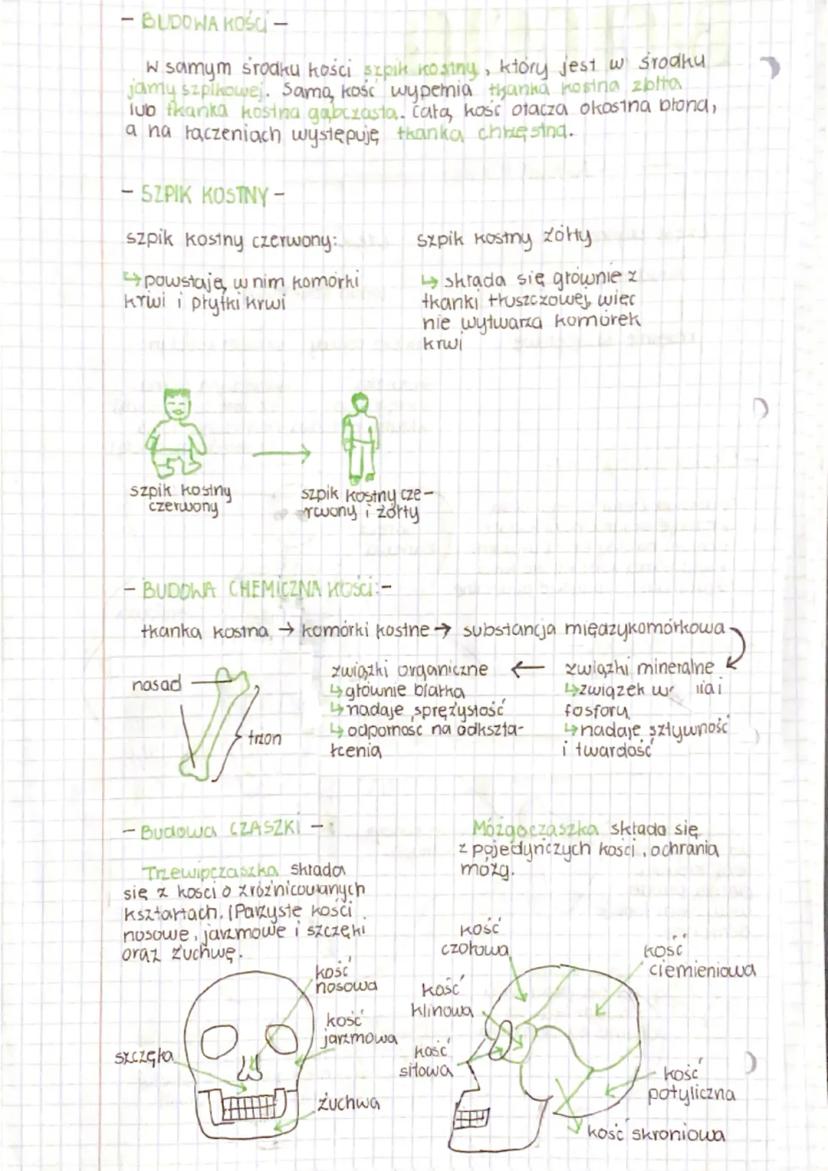 - BUDOWA KOŚCI -
W samym środku kości szpik kostny, który jest w środku
jamy szpikowej. Samą kość wypełnia tkanka kostna zbita
lub tkanka kostna gąbczasta. Całą kość otacza okostna błona,
a na łączeniach występuję tkanka chrzęstna.
- SZPIK KOSTNY -
szpik kostny czerwony:
↳ powstają w nim komórki
krwi i płytki krwi
szpik kostny żółty
↳ składa się głównie z
tkanki tłuszczowej, wiec
nie wytwarza komórek
krwi
szpik kostny
czerwony
szpik kostny cze-
rwony i żółty
- BUDOWA CHEMICZNA KOŚCI:-
tkanka kostna → komórki kostne → substancja międzykomórkowa
nasad
trzon
związki organiczne ←
↳ głównie białka
↳ nadaje sprężystość
↳ odporność na odkszta-
łcenia
związki mineralne
↳ związek i
fosforu
↳ nadaje sztywność
i twardość
- Budowa CZASZKI -:
Trzewioczaszka składa
się z kości o zróżnicowanych
kształtach. (Parzyste kości
nosowe, jarzmowe i szczęki
oraz żuchwę.
Mózgoczaszka składa się
z pojedyńczych kości, ochrania
mózg.
kość
nosowa
kość
jarzmowa
szczęka
żuchwa
kość
czołowa
kość
ciemieniowa
kość
klinowa
kość
sitowa
kość
potyliczna
kość skroniowa